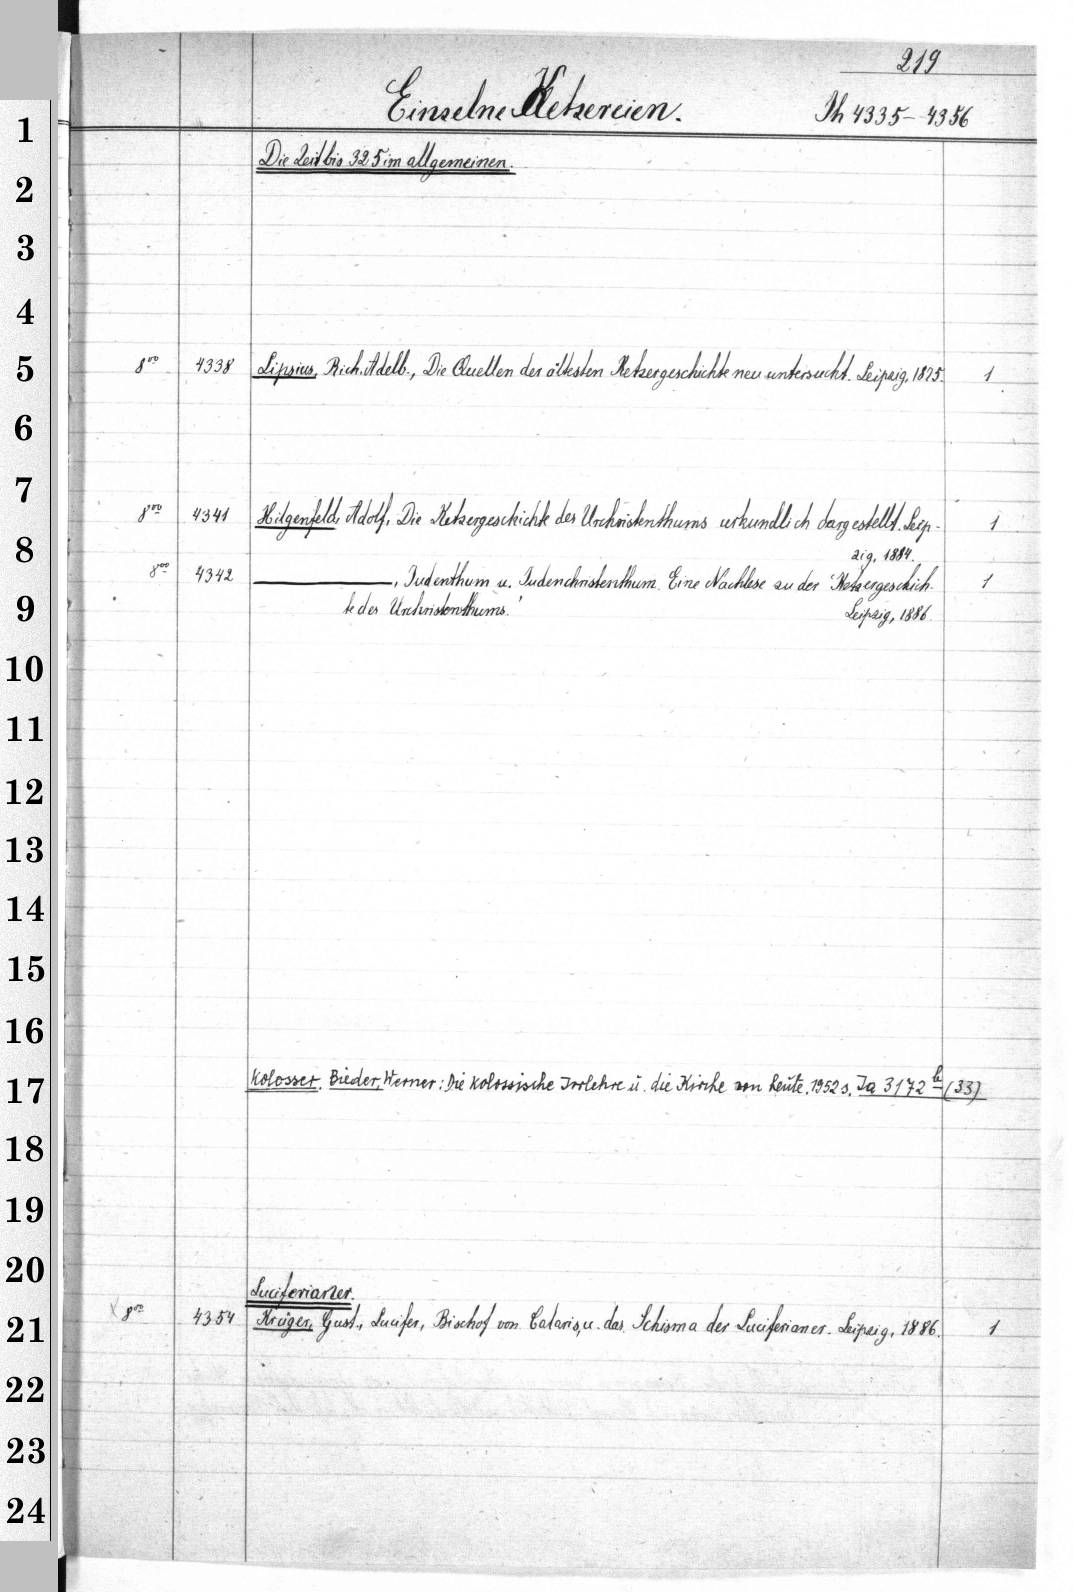 219
Einzelne Ketzereien.
Th 4335-4356
Die Zeit bis 325 im allgemeinen.
8vo 4338 Lipsius, Rich. Adelb., Die Quellen der ältesten Ketzergeschichte neu untersucht. Leipzig, 1875. 1
8vo 4341 Hilgenfeld, Adolf, Die Ketzergeschichte des Urchristenthums urkundlich dargestellt. Leip-
zig, 1884. 1
8vo 4342 ———, Judenthum u. Judenchristenthum. Eine Nachlese zu der 'Ketzergeschich-
te des Urchristenthums.' Leipzig, 1886. 1
Kolosser. Bieder, Werner: Die kolossische Irrlehre u. die Kirche von heute. 1952 s. Ia 3172 b (33)
Luciferianer.
8vo 4354 Krüger, Gust., Lucifer, Bischof von Calaris, u. das Schisma der Luciferianer. Leipzig, 1886. 1
1
2
3
4
5
6
7
8
9
10
11
12
13
14
15
16
17
18
19
20
21
22
23
24